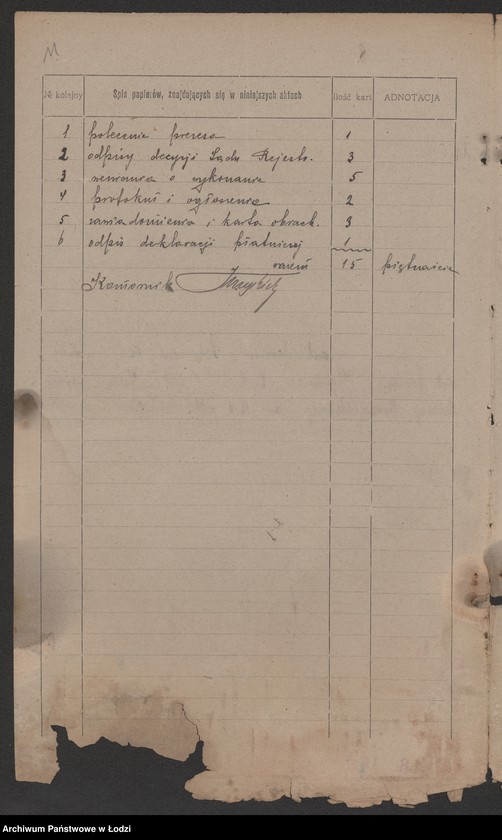 № kolejny Spis papierów, znajdujących się w niniejszych aktach Ilość kart ADNOTACJA
1 polecenie prezesa 1
2 odpisy decyzji Sądu Rejestr. 3
3 o wykonanie 5
4 protokuł i ogłoszenie 2
5 zawiadomienia i karta obrach. 3
6 odpis deklaracji płatniczej 1
razem 15 piętnaście
Komornik
Archiwum Państwowe w Łodzi